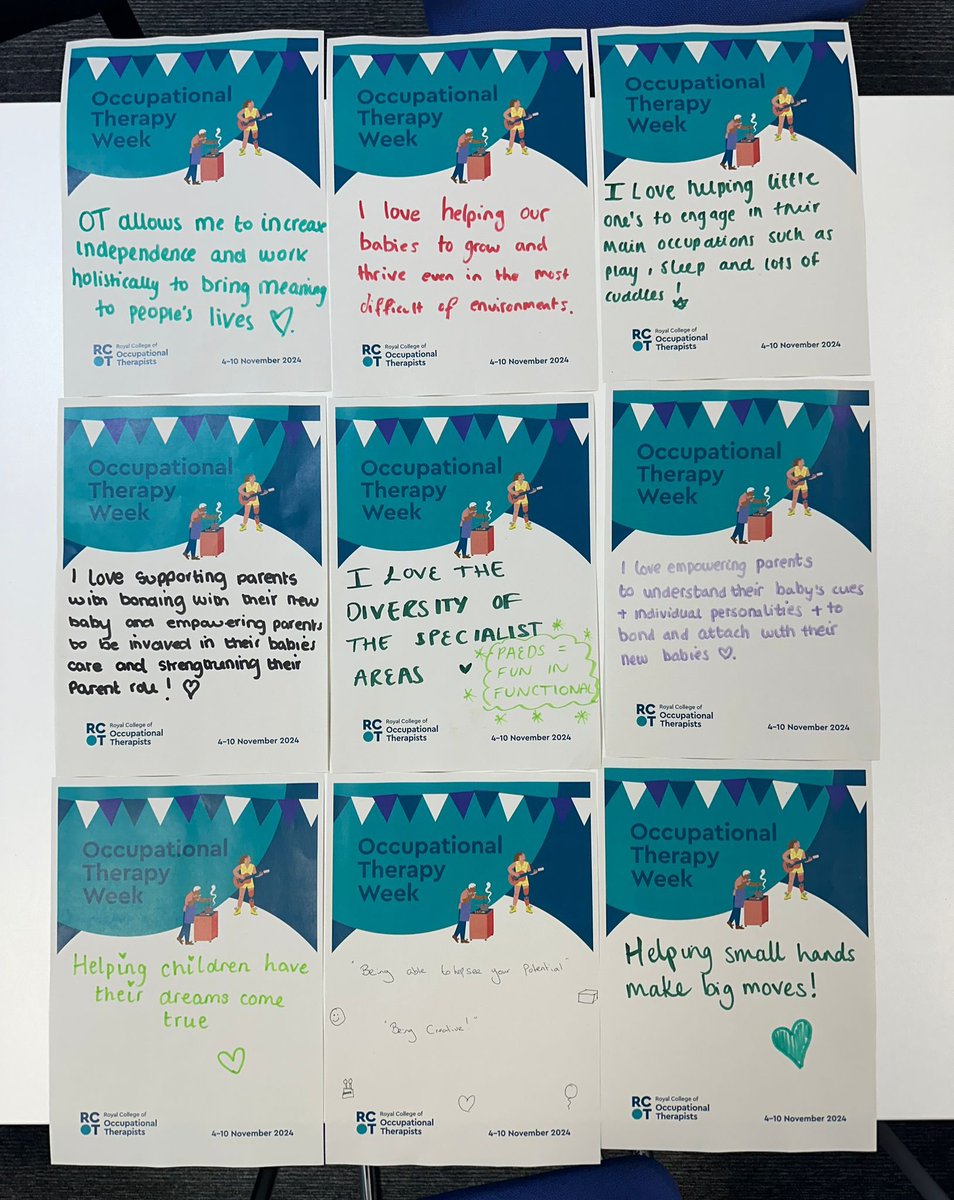 Occupational
Therapy
Week
OT allows me to increase
independence and work
holistically to bring meaning
to people's lives
RC
OT
Royal College of
Occupational
Therapists
4–10 November 2024
Occupational
Therapy
Week
I love helping our
babies to grow and
thrive even in the most
difficult of environments.
RC
OT
Royal College of
Occupational
Therapists
4–10 November 2024
Occupational
Therapy
Week
I Love helping little
one's to engage in their
main occupations such as
play, sleep and lots of
cuddles!
RC
OT
Royal College of
Occupational
Therapists
4–10 November 2024
Occupational
Therapy
Week
I love supporting parents
with bonding with their new
baby and empowering parents
to be involved in their babies
care and strengthening their
parent role!
RC
OT
Royal College of
Occupational
Therapists
4–10 November 2024
Occupational
Therapy
Week
I LOVE THE
DIVERSITY OF
THE SPECIALIST
AREAS
PAEDS =
FUN IN
FUNCTIONAL
RC
OT
Royal College of
Occupational
Therapists
4–10 November 2024
Occupational
Therapy
Week
I love empowering parents
to understand their baby's cues
+ individual personalities + to
bond and attach with their
new babies
RC
OT
Royal College of
Occupational
Therapists
4–10 November 2024
Occupational
Therapy
Week
Helping children have
their dreams come
true
RC
OT
Royal College of
Occupational
Therapists
4–10 November 2024
Occupational
Therapy
Week
"Being able to see your Potential"
"Being Creative!"
RC
OT
Royal College of
Occupational
Therapists
4–10 November 2024
Occupational
Therapy
Week
Helping small hands
make big moves!
RC
OT
Royal College of
Occupational
Therapists
4–10 November 2024